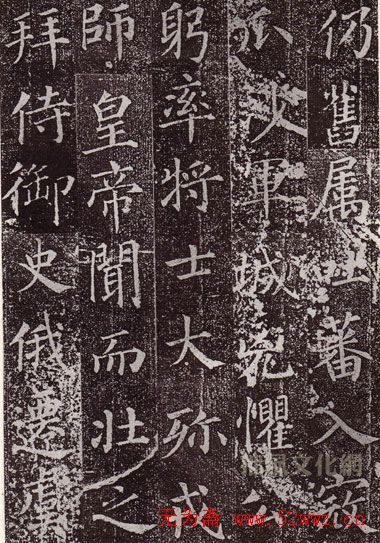 仍舊属吐蕃入寇
瓜沙軍城懼公
躬率將士大殄戎
師皇帝聞而壯之
拜侍御史俄遷虞
文化網
无为斋 www.52wwz.cn